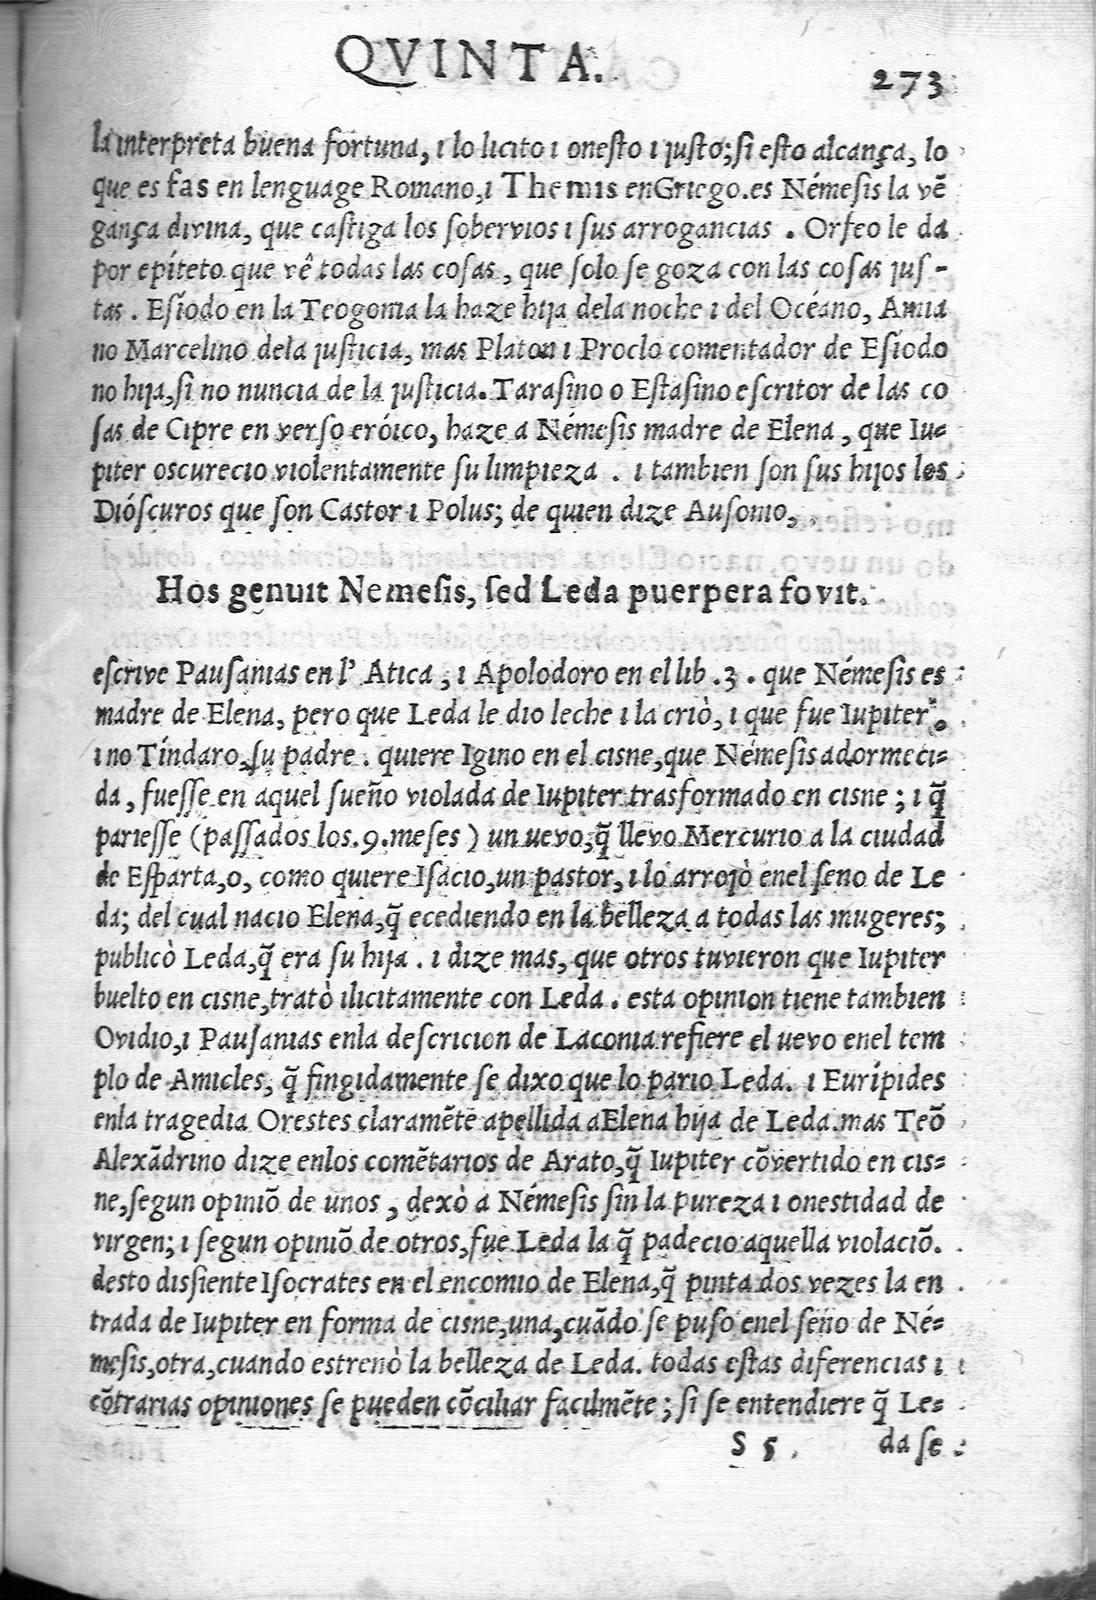 QVINTA.
273
la interpreta buena fortuna, i lo licito i onesto i justo; si esto alcança, lo
que es fas en lenguage Romano, i Themis en Griego. es Némesis la vẽ
gança divina, que castiga los sobervios i sus arrogancias. Orfeo le da
por epíteto que vê todas las cosas, que solo se goza con las cosas jus-
tas. Esíodo en la Teogonia la haze hija dela noche i del Océano, Amia
no Marcelino dela justicia, mas Platon i Proclo comentador de Esíodo
no hija, si no nuncia de la justicia. Tarasino o Estasino escritor de las co
sas de Cipre en verso eróico, haze a Némesis madre de Elena, que Iu-
piter oscurecio violentamente su limpieza. i tambien son sus hijos los
Dióscuros que son Castor i Polus; de quien dize Ausonio,
Hos genuit Nemesis, sed Leda puerpera fovit.
escrive Pausanias en l' Atica, i Apolodoro en el lib. 3. que Némesis es
madre de Elena, pero que Leda le dio leche i la criò, i que fue Iupiter
i no Tíndaro, su padre. quiere Igino en el cisne, que Némesis adormeci-
da, fuesse en aquel sueño violada de Iupiter trasformado en cisne; i q̃
pariesse (passados los. 9. meses) un uevo, q̃ llevo Mercurio a la ciudad
de Esparta, o, como quiere Isacio, un pastor, i lo arrojò enel seno de Le
da; del cual nacio Elena, q̃ ecediendo en la belleza a todas las mugeres;
publicò Leda, q̃ era su hija. i dize mas, que otros tuvieron que Iupiter
buelto en cisne, tratò ilicitamente con Leda. esta opinion tiene tambien
Ovidio, i Pausanias enla descricion de Laconia refiere el uevo enel tem
plo de Amicles, q̃ fingidamente se dixo que lo pario Leda. i Eurípides
enla tragedia Orestes claramẽte apellida a Elena hija de Leda. mas Teõ
Alexãdrino dize enlos comẽtarios de Arato, q̃ Iupiter cõvertido en cis-
ne, segun opiniõ de unos, dexò a Némesis sin la pureza i onestidad de
virgen; i segun opiniõ de otros, fue Leda la q̃ padecio aquella violaciõ.
desto dissiente Isocrates en el encomio de Elena, q̃ pinta dos vezes la en
trada de Iupiter en forma de cisne, una, cuãdo se puso enel seno de Né-
mesis, otra, cuando estrenò la belleza de Leda. todas estas diferencias i
cõtrarias opiniones se pueden cõciliar facilmẽte; si se entendiere q̃ Le-
S 5. da se